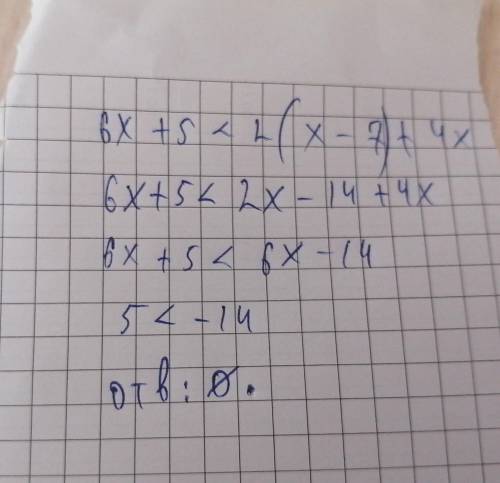 6x + 5 < 2(x - 7) + 4x
6x + 5 < 2x - 14 + 4x
6x + 5 < 6x - 14
5 < -14
отв: ∅.